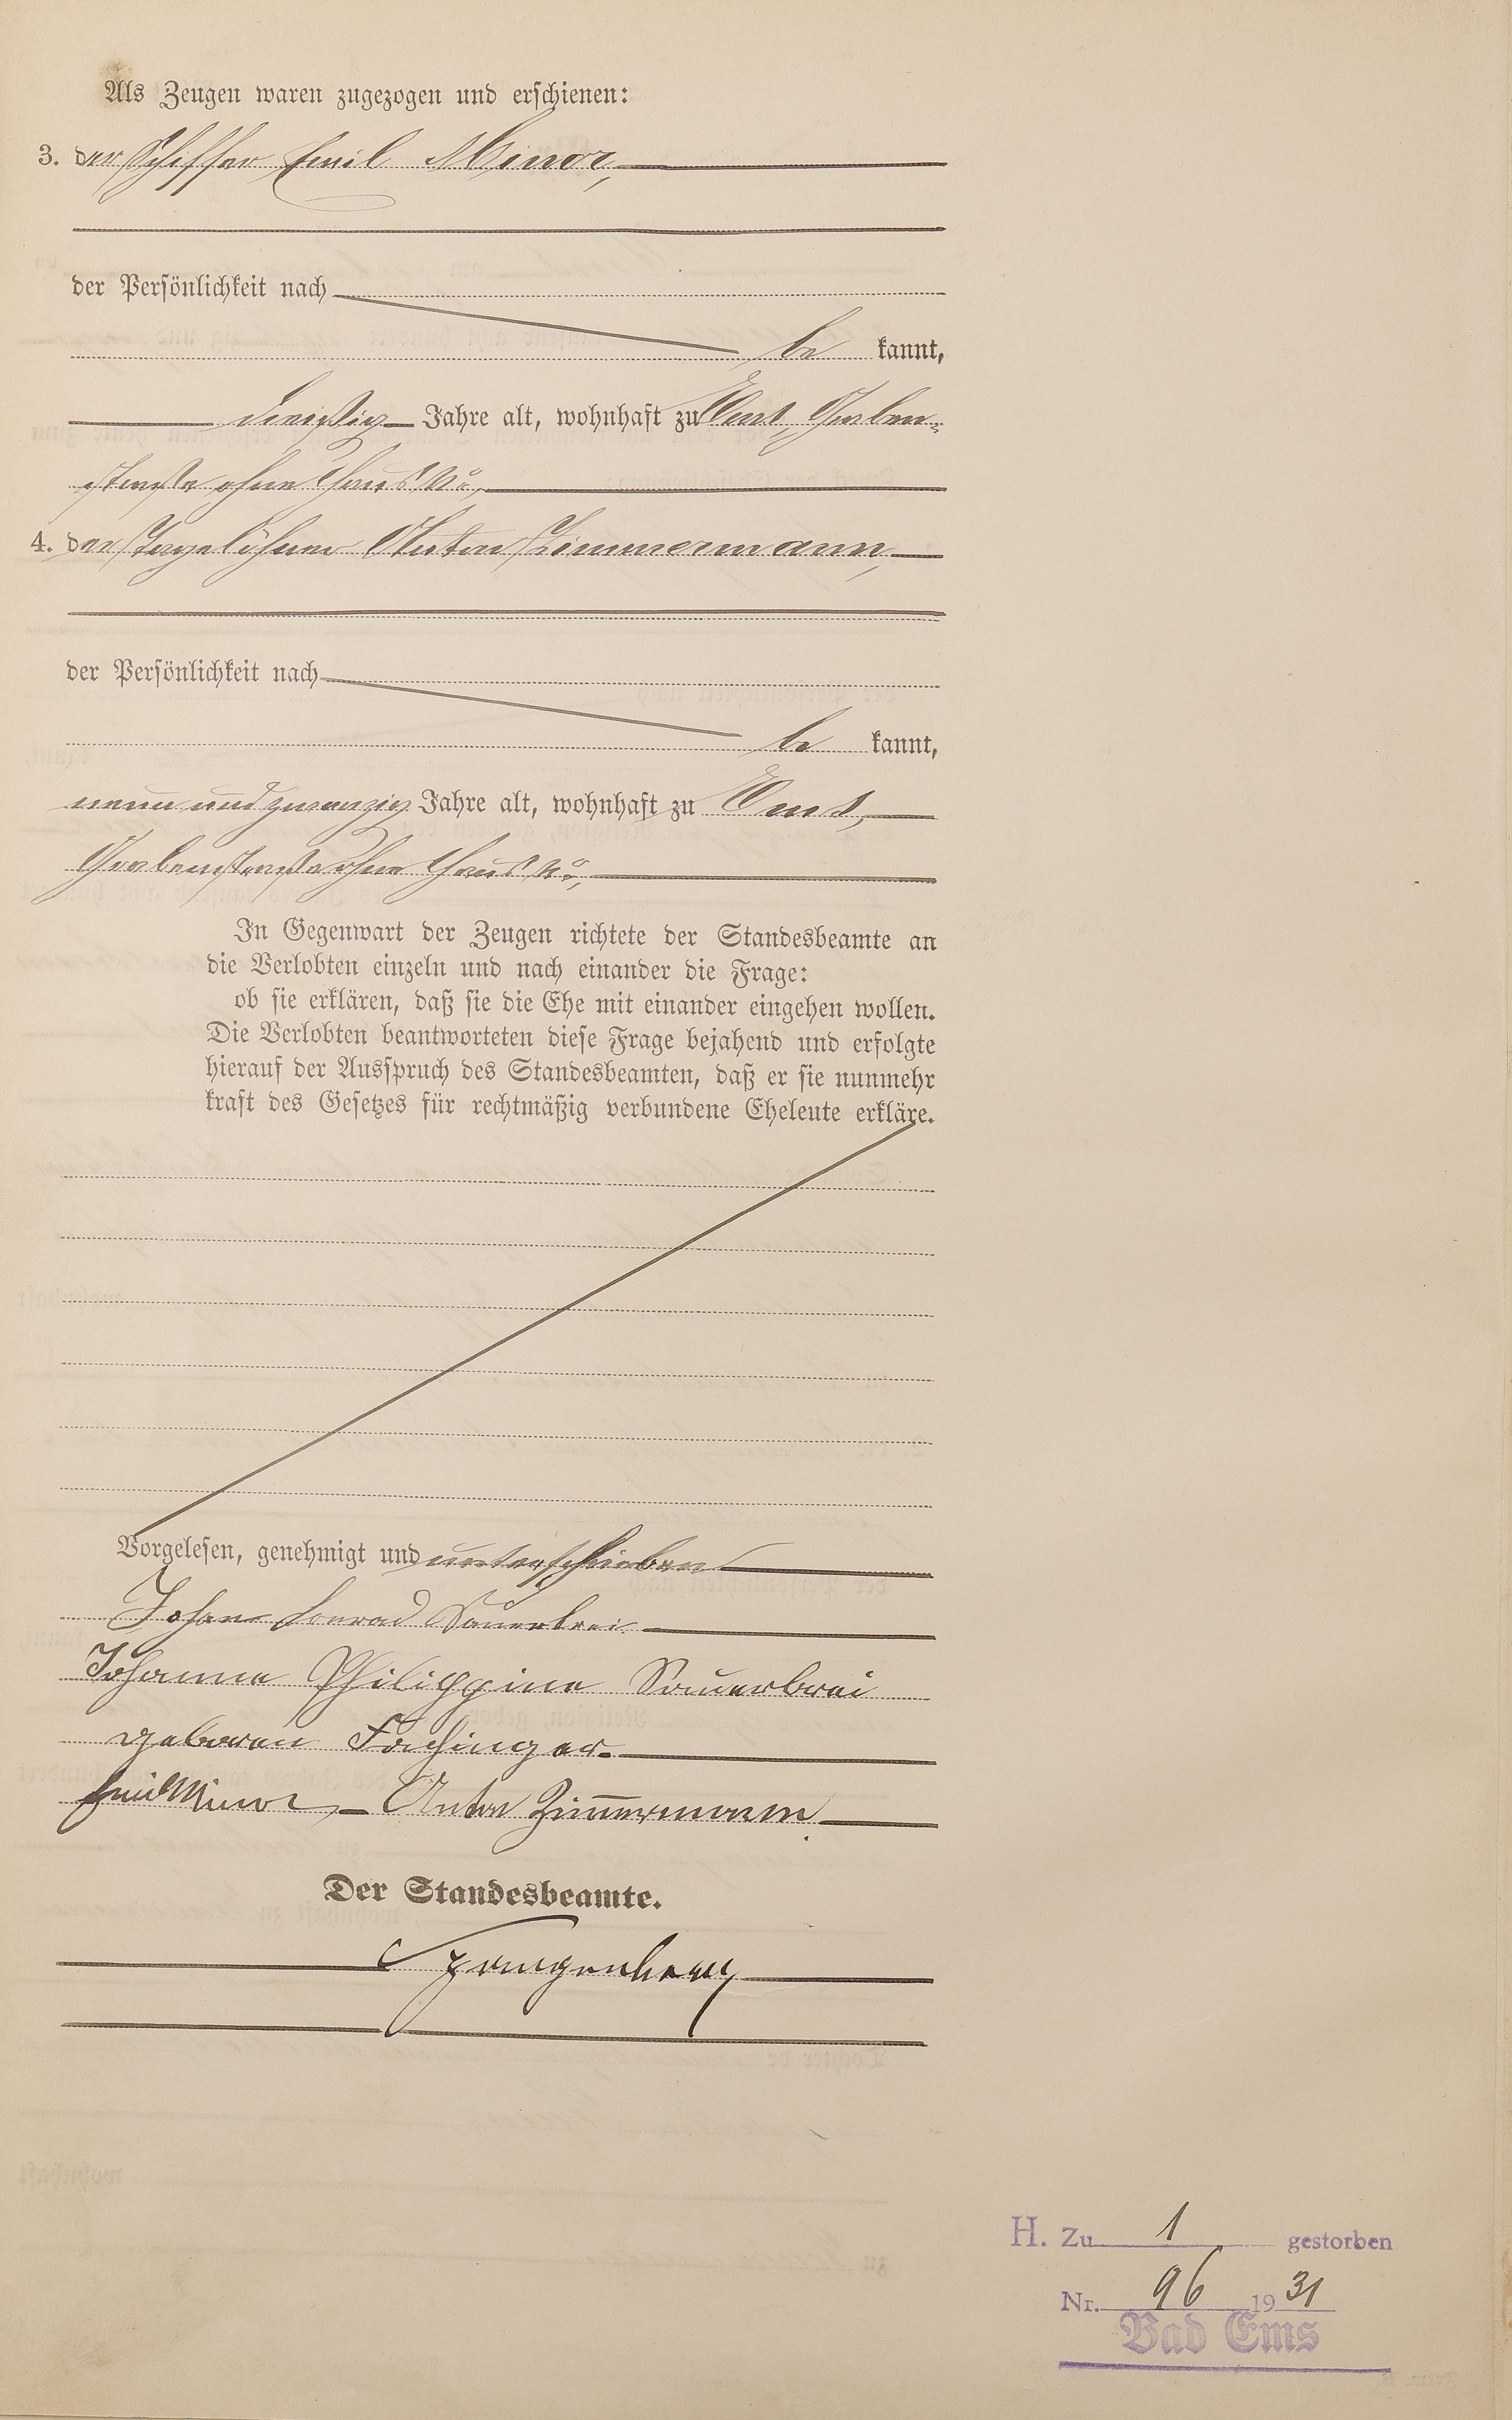 Als Zeugen waren zugezogen und erschienen:
3. der Schiffer Emil Minor,
der Persönlichkeit nach
be kannt,
dreißig Jahre alt, wohnhaft zu Ems, Graben-
straße ohne Haus No,
4. der Tagelöhner Anton Zimmermann,
der Persönlichkeit nach
be kannt,
neun und zwanzig Jahre alt, wohnhaft zu Ems,
Grabenstraße ohne Haus No,
In Gegenwart der Zeugen richtete der Standesbeamte an
die Verlobten einzeln und nach einander die Frage:
ob sie erklären, daß sie die Ehe mit einander eingehen wollen.
Die Verlobten beantworteten diese Frage bejahend und erfolgte
hierauf der Ausspruch des Standesbeamten, daß er sie nunmehr
kraft des Gesetzes für rechtmäßig verbundene Eheleute erkläre.
Vorgelesen, genehmigt und unterschrieben
Johann Conrad Sauerbrei
Johanne Philippine Sauerbrei
geboren Fachinger.
Emil Minor, Anton Zimmermann
Der Standesbeamte.
Spangenberg
H. Zu 1 gestorben
Nr. 96 1931
Bad Ems